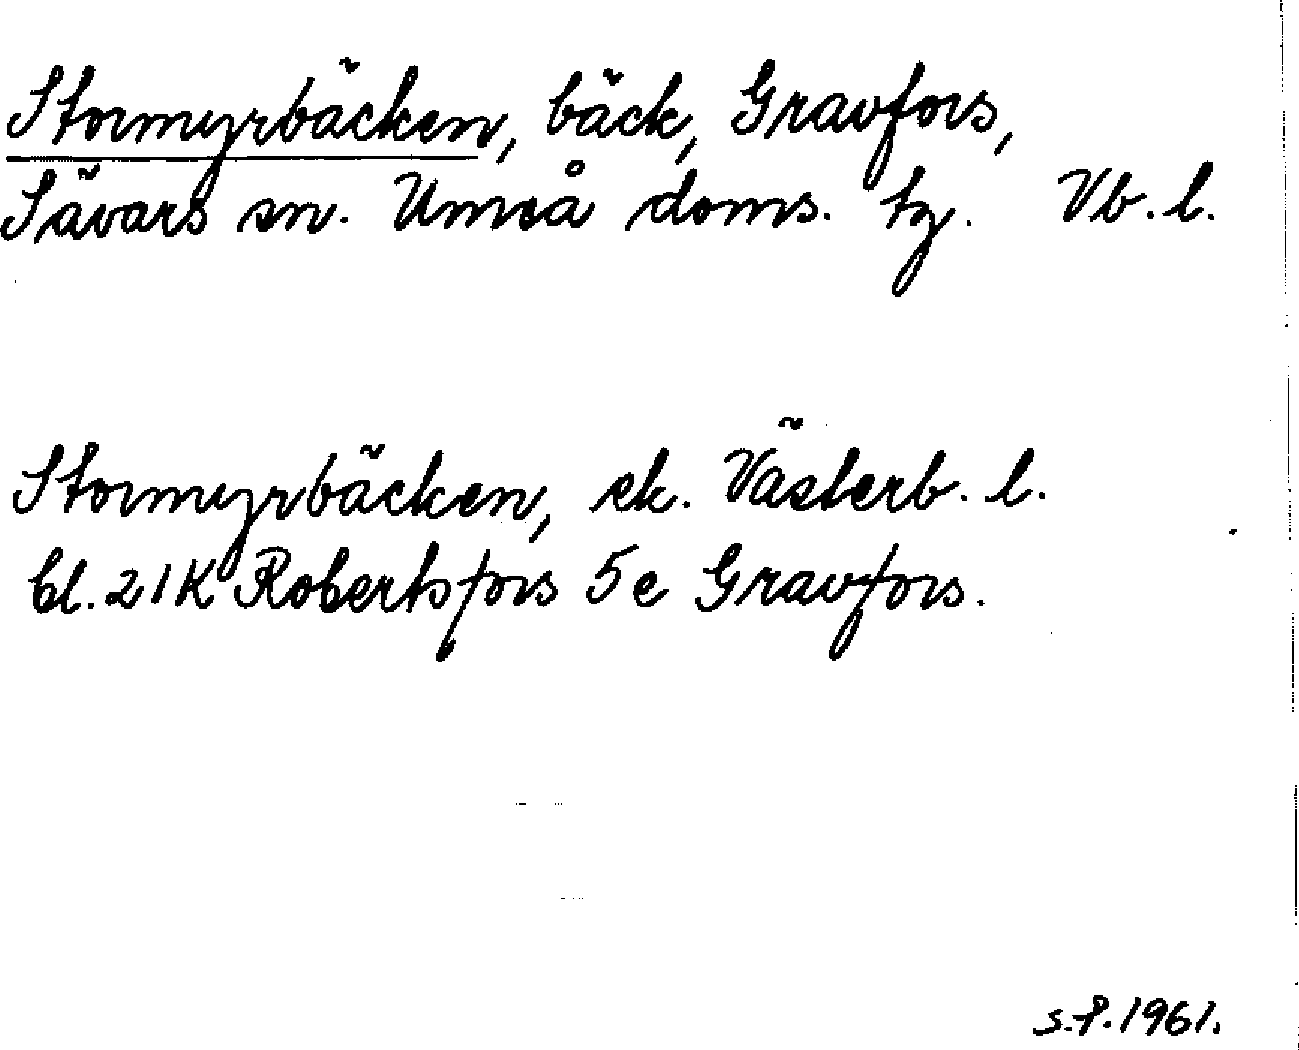 Stormyrbäcken, bäck, Gravfors,
Sävars sn. Umeå doms. tg. Vb. l.
Stormyrbäcken, ek. Västerb. l.
bl. 21K Robertsfors 5e Gravfors.
S.P. 1961.